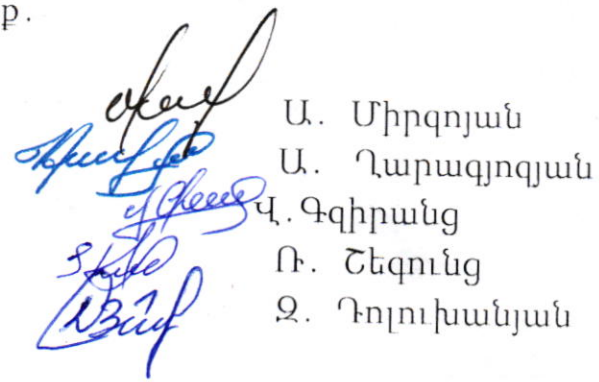 ք.
Ա. Միրզոյան
Ա. Ղարագյոզյան
Վ.Գզիրանց
Ռ. Շեգունց
Զ. Դոլուխանյան